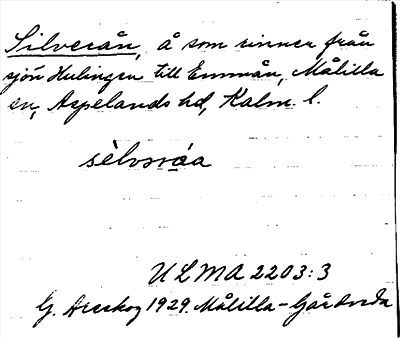 Silverån, å som rinner från
sjön Hulingen till Emmån, Målilla
sn, Aspelands hd, Kalm. l.
sèlvsrǻa
ULMA 2203:3
G. Areskog 1929. Målilla-Gårdveda